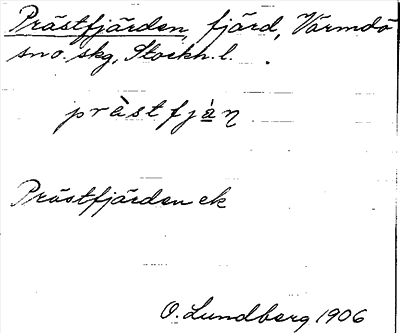 Prästfjärden, fjärd, Värmdö
sno. skg, Stockh. l.
prὰstfjὰ̱ƞ
Prästfjärden ek
O. Lundberg 1906